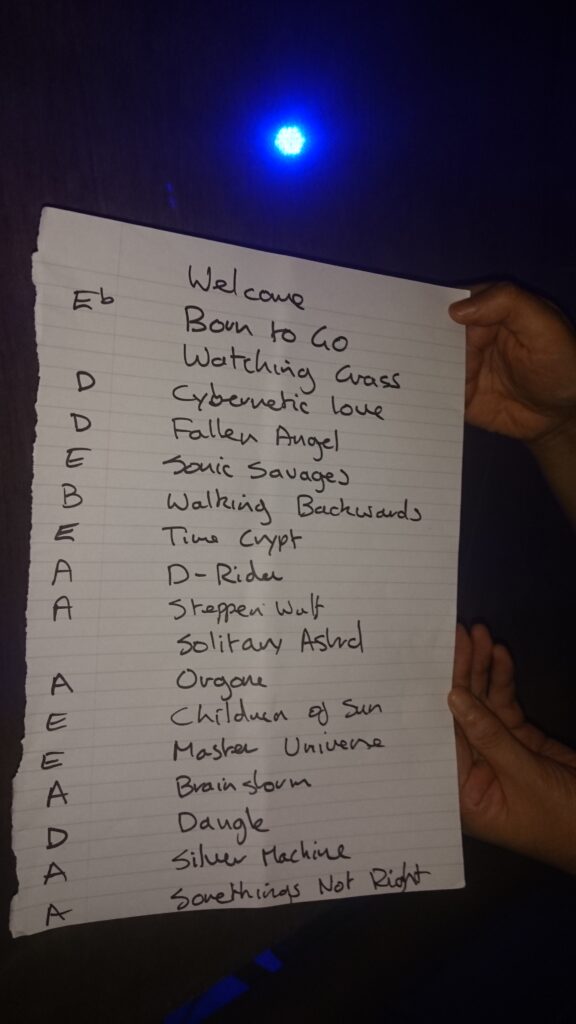 Welcome
E♭ Born to Go
Watching Grass
D Cybernetic love
D Fallen Angel
E Sonic Savages
B Walking Backwards
E Time Crypt
A D-Rider
A Steppen Wolf
Solitary
A Orgone
E Children of Sun
E Master Universe
A Brainstorm
D Dangle
A Silver Machine
A Somethings Not Right